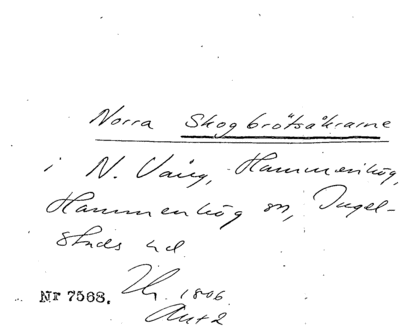 Norra Skogbrötsåkrarne
i N. Vång, Hammenhög,
Hammenhög sn, Ingel-
stads hd.
Nr 7568.
1806.
Akt 2